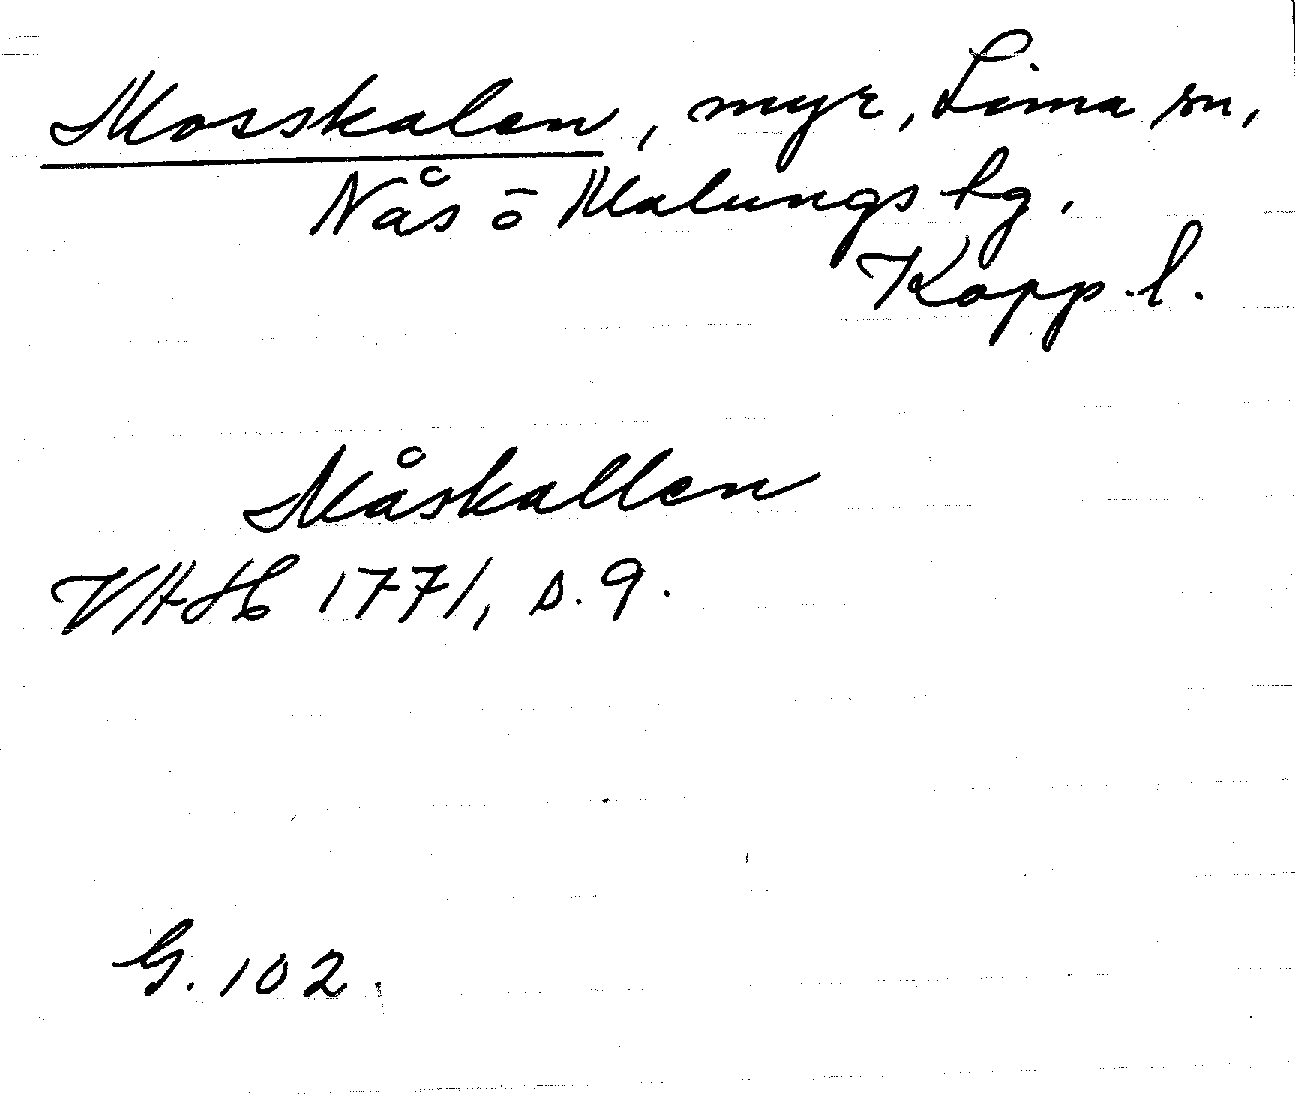 Mosskalen, myr, Lima sn,
Nås o Malungs hg.
Kopp. l.
Måskallen
VHH 1771, s. 9.
G. 102.